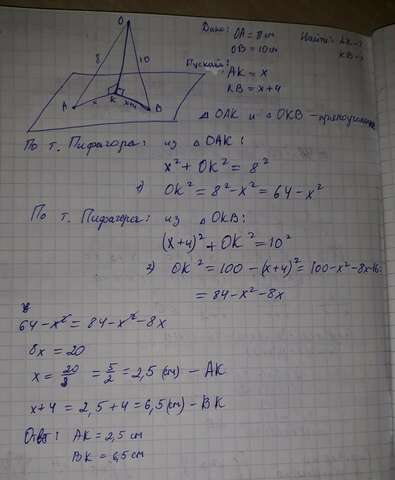 O
8
10
A
x
K
x+4
B
Дано: OA = 8 см
OB = 10 см
Найти: AK - ?
KB - ?
Пускай:
AK = x
KB = x+4
△ OAK и △ OKB -
По т. Пифагора: из △ OAK:
x² + OK² = 8²
1) OK² = 8² - x² = 64 - x²
По т. Пифагора: из △ OKB:
(x+4)² + OK² = 10²
2) OK² = 100 - (x+4)² = 100 - x² - 8x - 16 =
= 84 - x² - 8x
64 - x² = 84 - x² - 8x
8x = 20
x = 20/8 = 5/2 = 2,5 (см) - AK
x+4 = 2,5 + 4 = 6,5 (см) - BK
Ответ: AK = 2,5 см
BK = 6,5 см